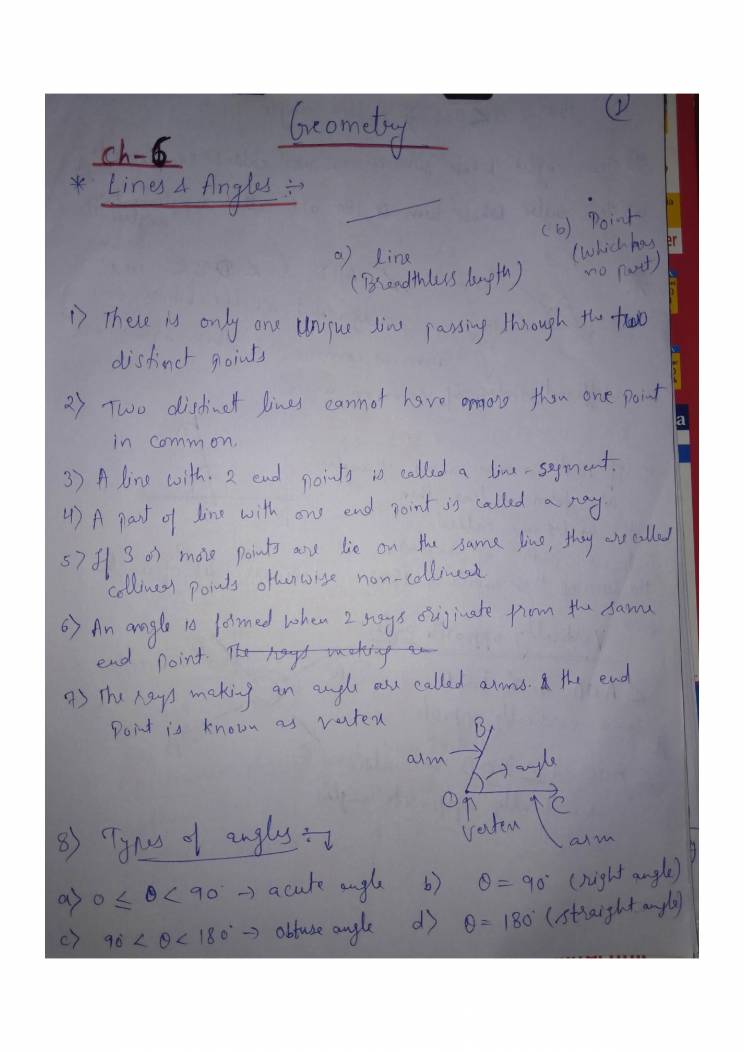 ①
Geometry
Ch-6
* Lines & Angles :→
a) line
(Breadthless length)
(b) Point
(which has
no part)
1) There is only one unique line passing through the two
distinct points
2) Two distinct lines cannot have more then one point
in common.
3) A line with 2 end points is called a line-segment.
4) A part of line with one end point is called a ray.
5) If 3 or more points are lie on the same line, they are called
collinear points otherwise non-collinear
6) An angle is formed when 2 rays originate from the same
end point. The rays making an
7) The rays making an angle are called arms. & the end
point is known as vertex
B
arm
angle
O
C
vertex
arm
8) Types of angles :→
a) 0 ≤ θ < 90° → acute angle b) θ = 90° (right angle)
c) 90° < θ < 180° → obtuse angle d) θ = 180° (straight angle)
er
a